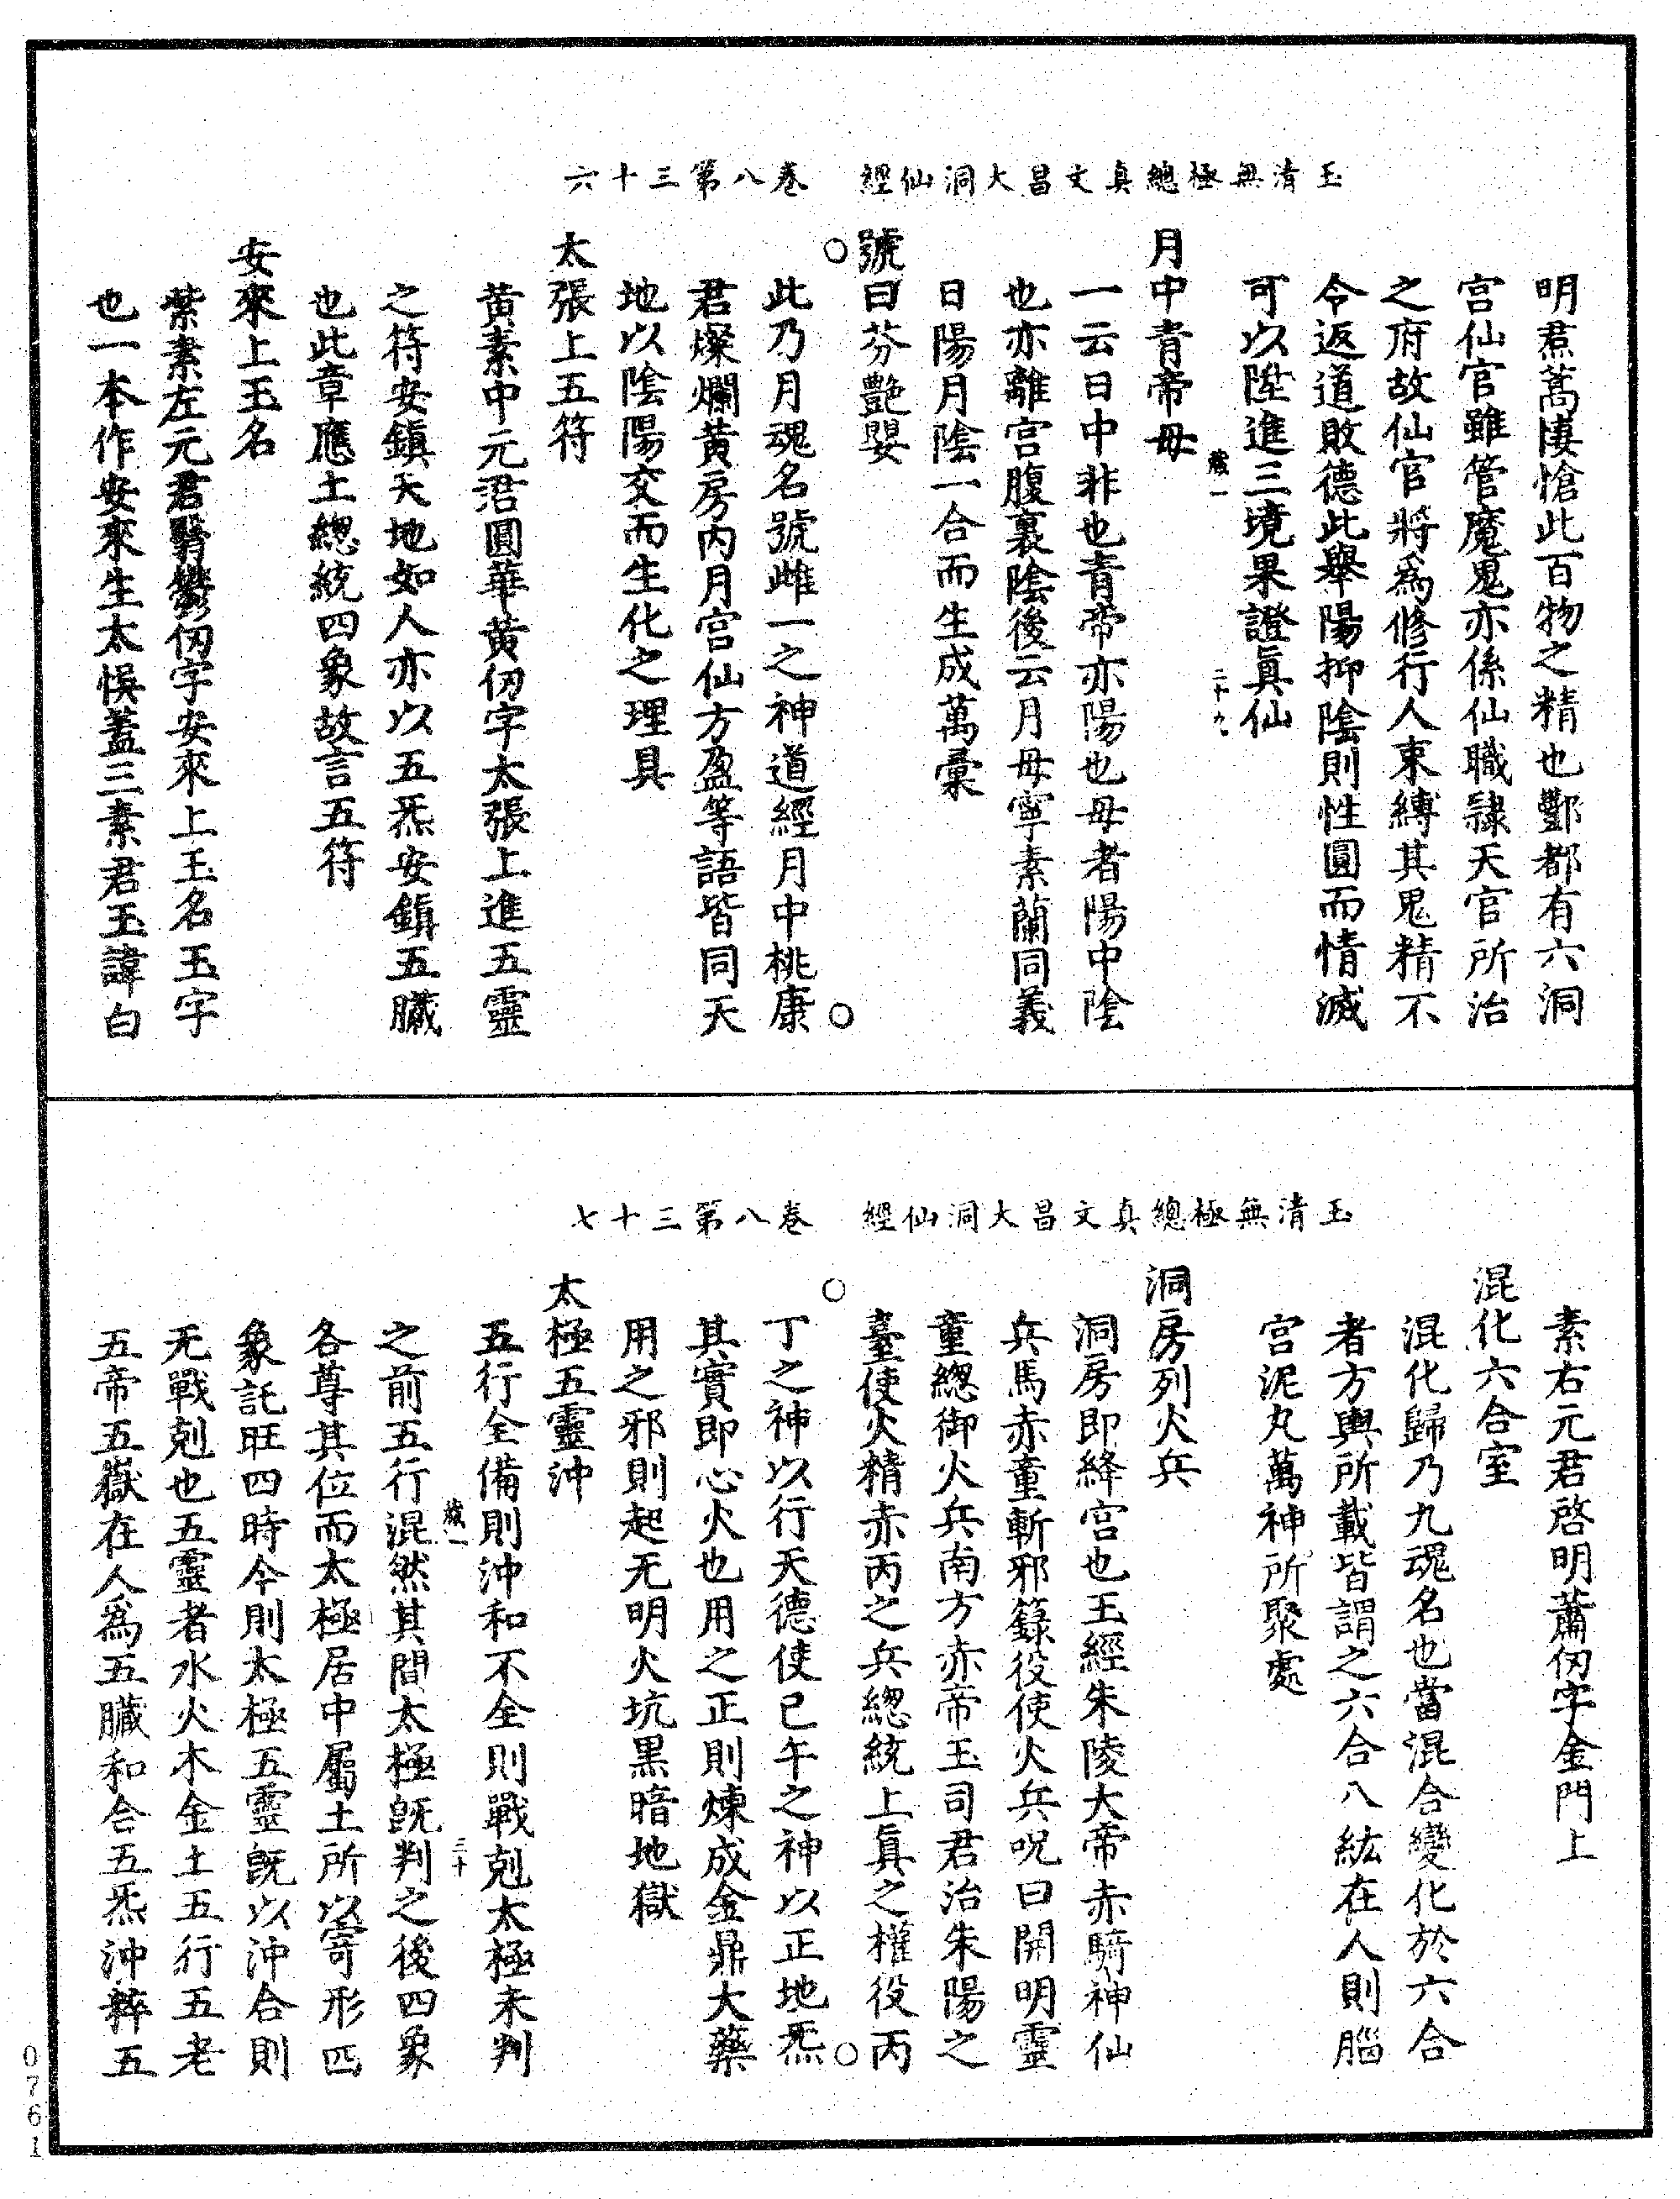 玉清無極總真文昌大洞仙經　卷八第三十六
明焄蒿悽愴此百物之精也酆都有六洞
宮仙官雖管魔鬼亦係仙職隷天官所治
之府故仙官將為修行人束縛其鬼精不
令返道敗德此舉陽抑陰則性圓而情滅
可以陞進三境果證眞仙
歳一　二十九
月中青帝母
一云日中非也青帝亦陽也母者陽中陰
也亦離宮腹裏陰後云月母寧素蘭同義
日陽月陰一合而生成萬彙
號曰芬艷嬰
此乃月魂名號雌一之神道經月中桃康
君燦爛黄房內月宮仙方盈等語皆同天
地以陰陽交而生化之理具
太張上五符
黄素中元君圓華黄仞字太張上進五靈
之符安鎮天地如人亦以五炁安鎮五臟
也此章應土總統四象故言五符
安來上玉名
紫素左元君翳鬱仞字安來上玉名玉字
也一本作安來生太悞蓋三素君玉諱白
玉清無極總真文昌大洞仙經　卷八第三十七
素右元君啓明蕭仞字金門上
混化六合室
混化歸乃九魂名也當混合變化於六合
者方輿所載皆謂之六合八紘在人則腦
宮泥丸萬神所聚處
洞房列火兵
洞房即絳宮也玉經朱陵大帝赤騎神仙
兵馬赤童斬邪籙役使火兵呪曰開明靈
童總御火兵南方赤帝玉司君治朱陽之
臺使火精赤丙之兵總統上眞之權役丙
丁之神以行天德使巳午之神以正地炁
其實即心火也用之正則煉成金鼎大藥
用之邪則起无明火坑黑暗地獄
太極五靈沖
五行全備則沖和不全則戰剋太極未判
歳一　三十
之前五行混然其間太極旣判之後四象
各尊其位而太極居中屬土所以寄形四
象託旺四時令則太極五靈旣以沖合則
无戰剋也五靈者水火木金土五行五老
五帝五嶽在人為五臟和合五炁沖粹五
0761